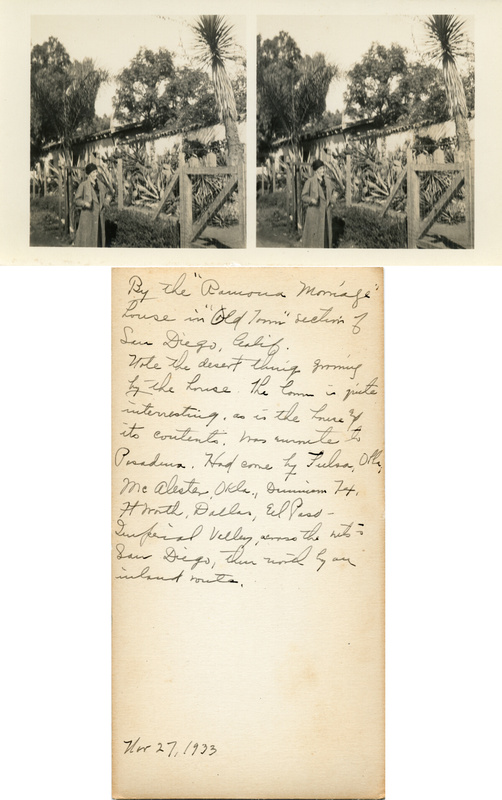 By the "Ramona Marriage"
house in "Old Town" section of
San Diego, Calif.
Note the desert things growing
by the house. The lawn is quite
interesting, as is the house &
its contents. Was enroute to
Pasadena. Had come by Tulsa, Okla,
Mc Alester, Okla., Tex,
Ft Worth, Dallas, El Paso -
Imperial Valley, across the mts
San Diego, then north by an
inland route.
Nov 27, 1933